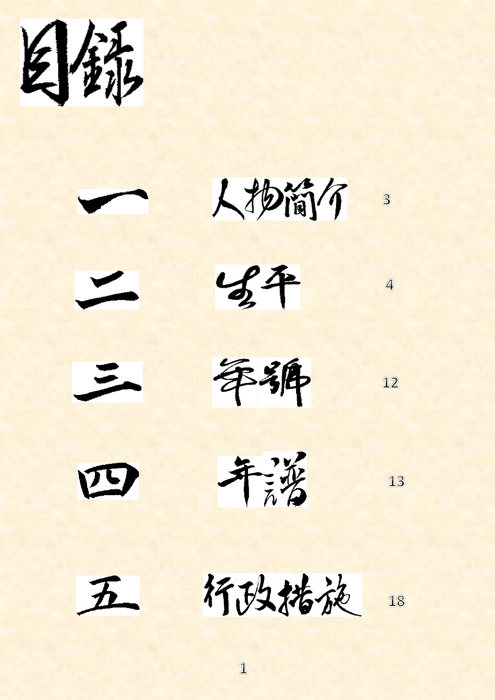 目錄
一 人物簡介 3
二 生平 4
三 年號 12
四 年譜 13
五 行政措施 18
1